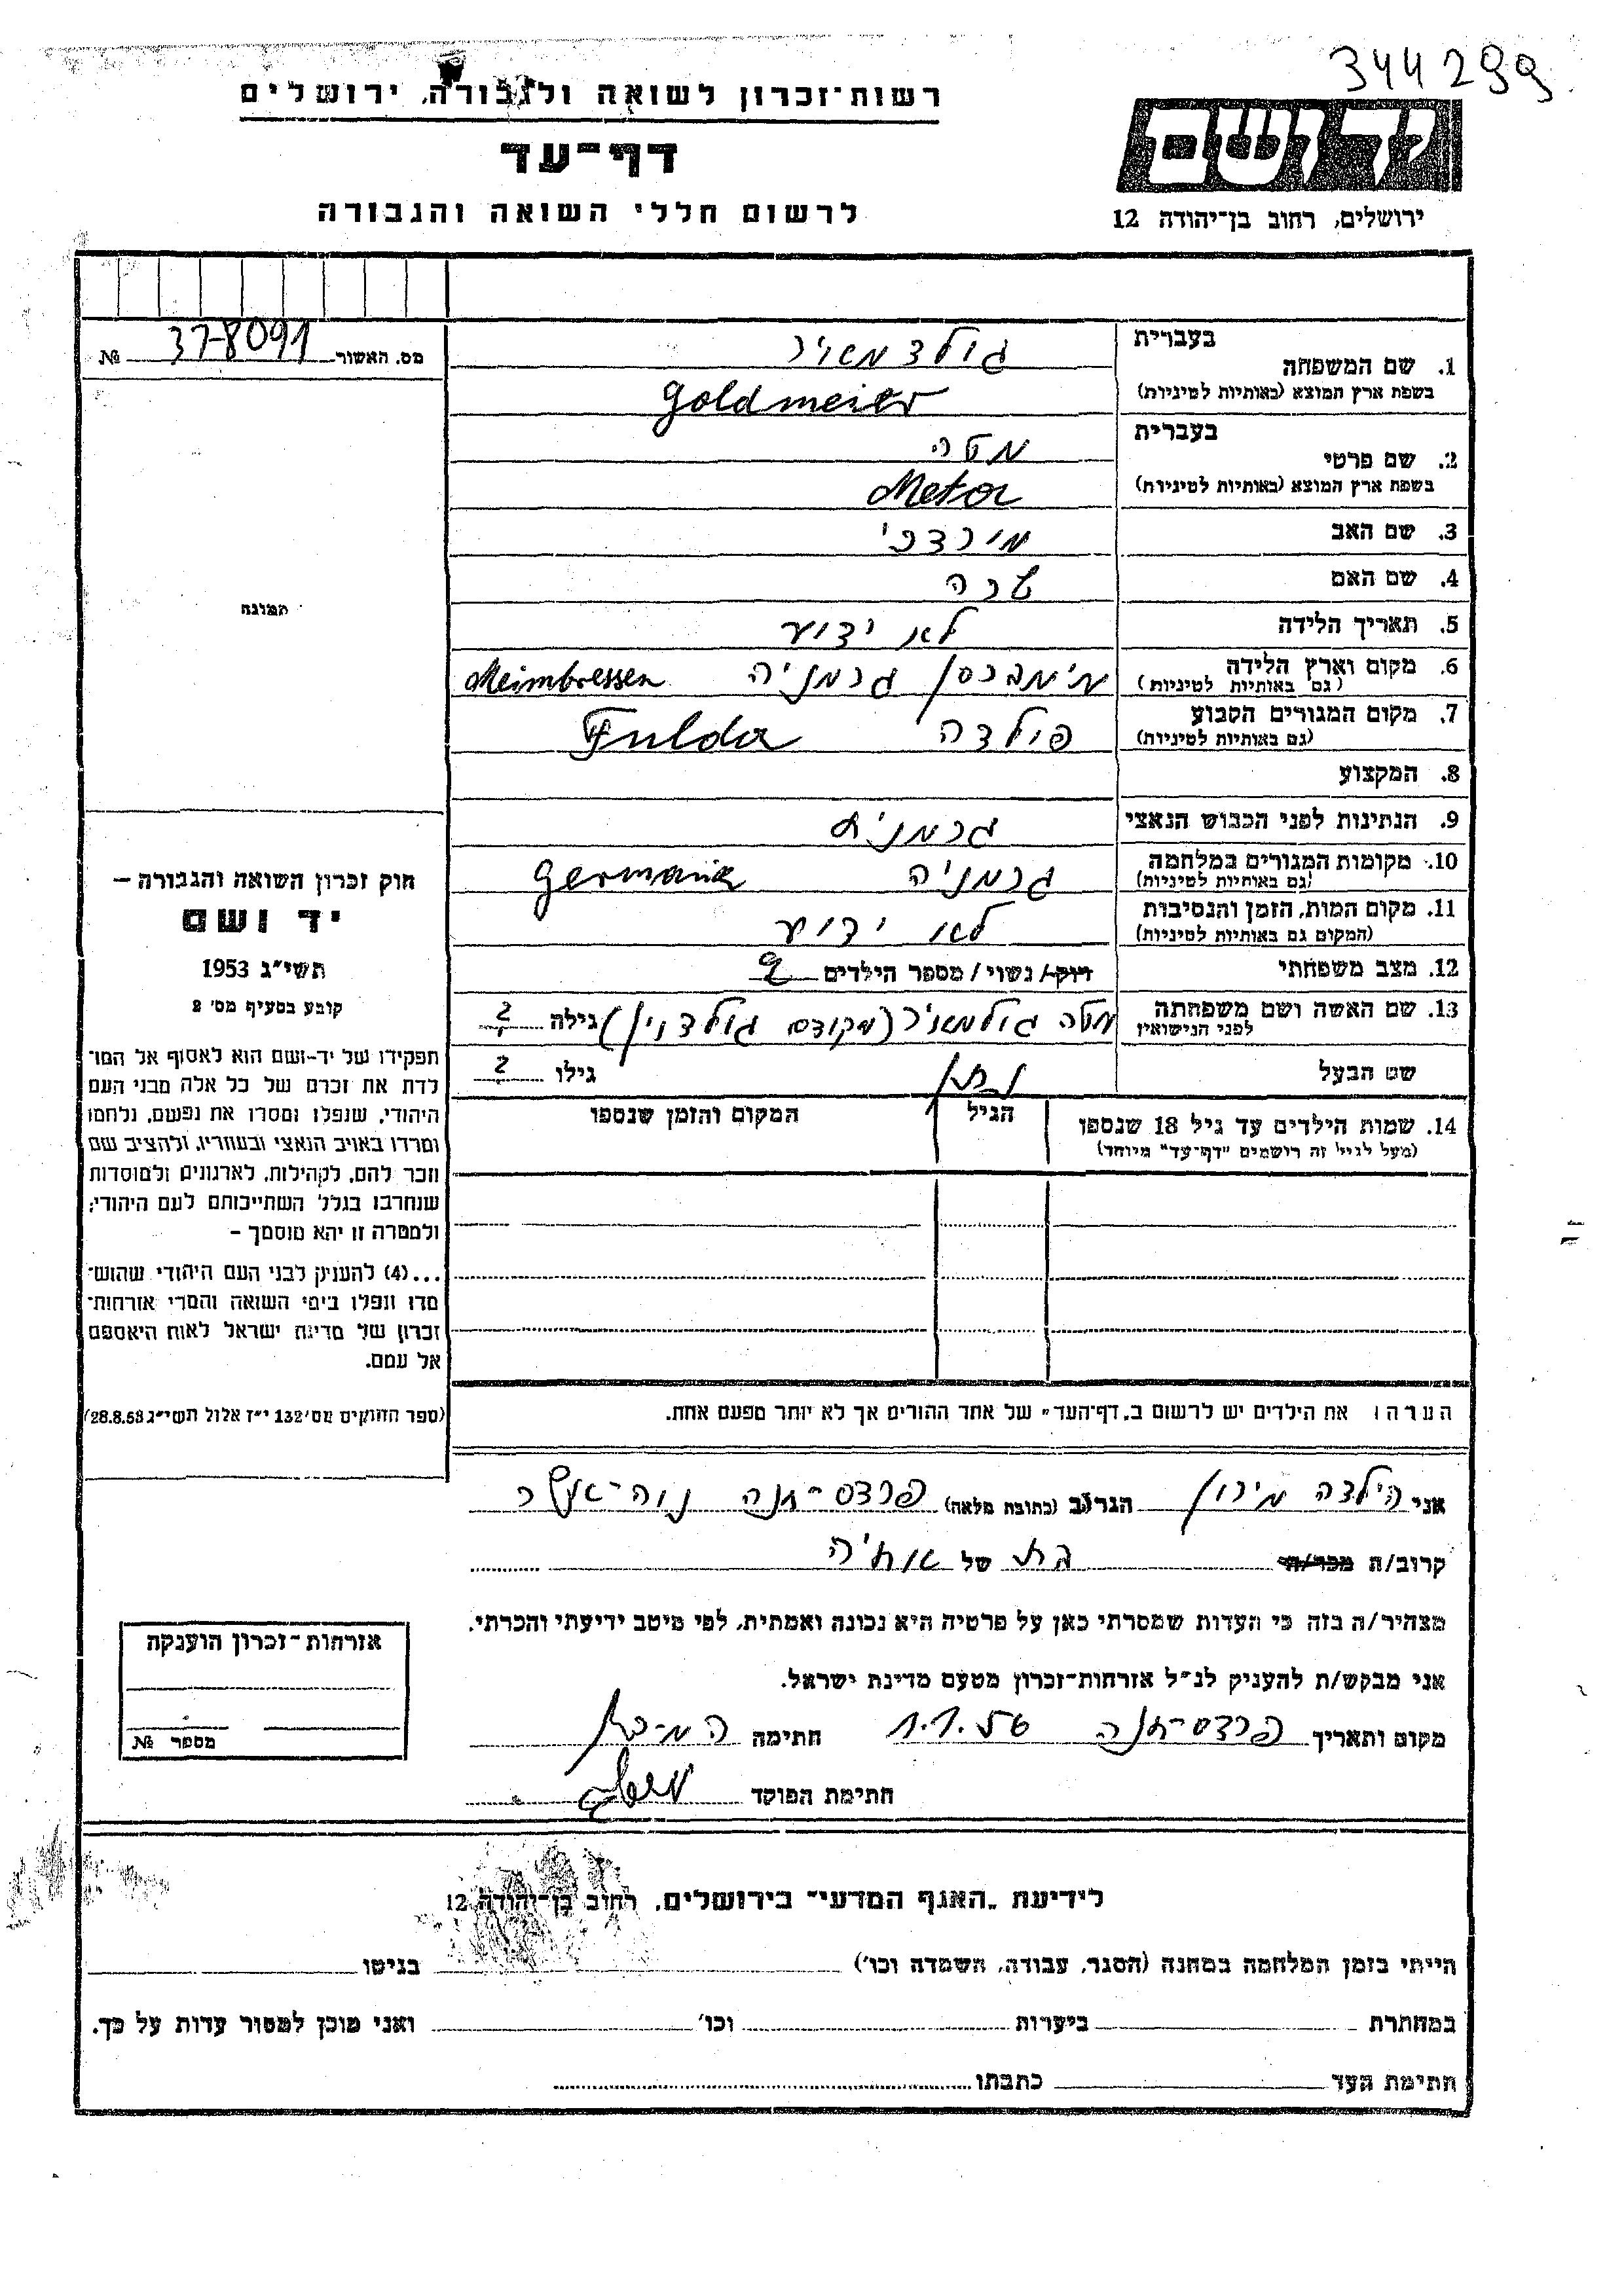 344299
רשות-זכרון לשואה ולגבורה, ירושלים
דף-עד
לרשום חללי השואה והגבורה
יד ושם
ירושלים, רחוב בן-יהודה 12
מס. האשור 37-8091 №
בעברית
1. שם המשפחה גולדמאיר
בשפת ארץ המוצא (באותיות לטיניות) Goldmeier
בעברית
2. שם פרטי מטה
בשפת ארץ המוצא (באותיות לטיניות) Meta
3. שם האב מורדכי
4. שם האם שרה
5. תאריך הלידה לא ידוע
6. מקום וארץ הלידה (גם באותיות לטיניות) מימברסן גרמניה Meimbressen
7. מקום המגורים הקבוע (גם באותיות לטיניות) פולדה Fulda
8. המקצוע
9. הנתינות לפני הכבוש הנאצי גרמנית
10. מקומות המגורים במלחמה (גם באותיות לטיניות) גרמניה Germania
11. מקום המות, הזמן והנסיבות (המקום גם באותיות לטיניות) לא ידוע
12. מצב משפחתי רווק/ נשוי/ מספר הילדים
13. שם האשה ושם משפחתה לפני הנישואין מטה גולמאיר (מקודם גולדוין) גילה ?
שם הבעל נתן גילו ?
14. שמות הילדים עד גיל 18 שנספו הגיל המקום והזמן שנספו
(מעל לגיל זה רושמים "דף-עד" מיוחד)
הערה: את הילדים יש לרשום ב„דף-העד" של אחד ההורים אך לא יותר מפעם אחת.
תמונה
חוק זכרון השואה והגבורה –
יד ושם
תשי"ג 1953
קובע בסעיף מס' 2
תפקידו של יד-ושם הוא לאסוף אל המו־
לדת את זכרם של כל אלה מבני העם
היהודי, שנפלו ומסרו את נפשם, נלחמו
ומרדו באויב הנאצי ובעוזריו, ולהציב שם
וזכר להם, לקהילות, לארגונים ולמוסדות
שנחרבו בגלל השתייכותם לעם היהודי;
ולמטרה זו יהא מוסמך –
...(4) להעניק לבני העם היהודי שהוש־
מדו ונפלו בימי השואה והמרי אזרחות־
זכרון של מדינת ישראל לאות היאספם
אל עמם.
(ספר החוקים מס' 132 י"ז אלול תשי"ג 28.8.53)
אני הילדה מירון הגר/ב (כתובת מלאה) פרדס-חנה נוה-אשר
קרוב/ה מכר/ה בת של אחיה
מצהיר/ה בזה כי העדות שמסרתי כאן על פרטיה היא נכונה ואמתית, לפי מיטב ידיעתי והכרתי.
אני מבקש/ת להעניק לנ"ל אזרחות-זכרון מטעם מדינת ישראל.
מקום ותאריך פרדס-חנה 1.1.56 חתימה
חתימת הפוקד
אזרחות-זכרון הוענקה
מספר №
לידיעת „האגף המדעי" בירושלים, רחוב בן-יהודה 12
הייתי בזמן המלחמה במחנה (הסגר, עבודה, השמדה וכו') בגיטו
במחתרת ביערות וכו' ואני מוכן למסור עדות על כך.
חתימת העד כתבתו